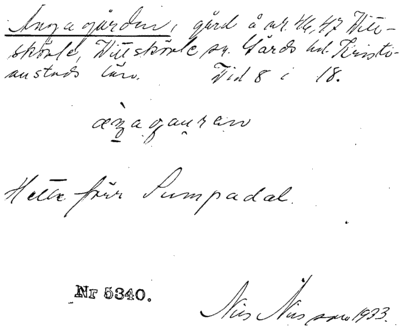 Angagården, gård å nr. 46, 47 Vitt-
skövle, Vittskövle sn. Gärds hd. Kristi-
anstads län. Vid 8 i 18.
Hette förr Sumpadal.
Nr 5340.
Nils Nilsson 1933.